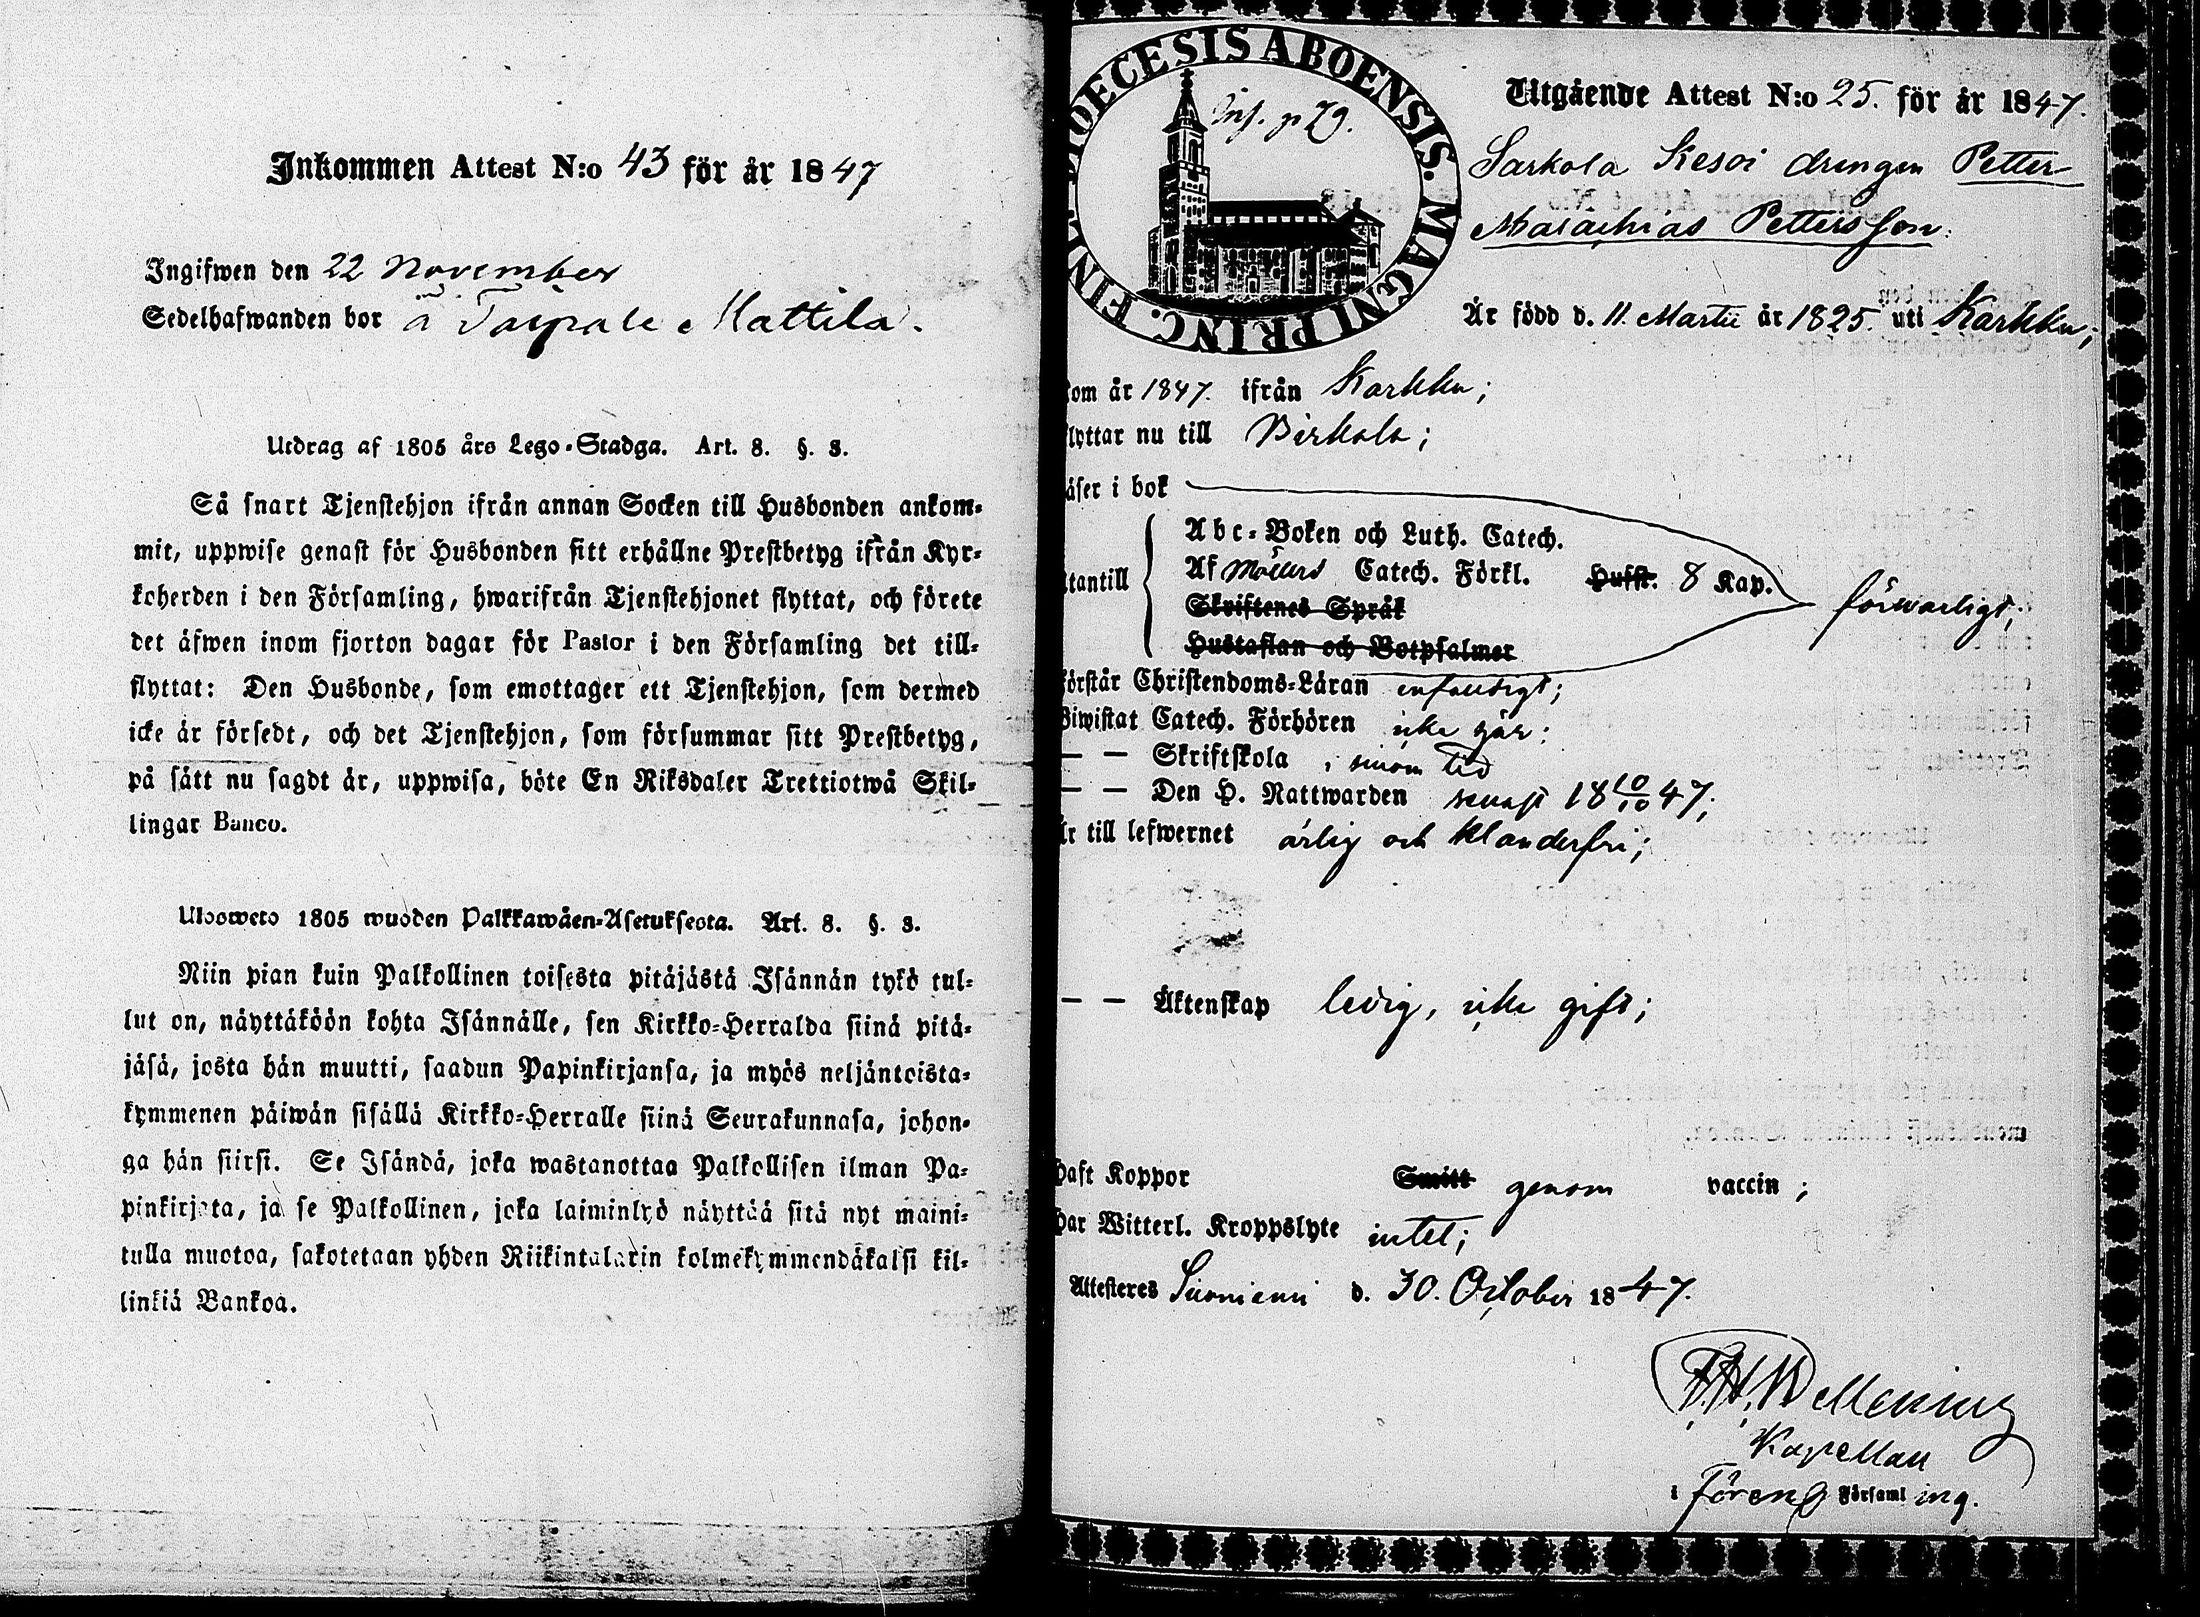 Inkommen Attest N:o 43 för år 1847
Ingifwen den 22 November
Sedelhafwanden bor å Taipale Mattila.
Utdrag af 1805 års Lego-Stadga. Art. 8. §. 3.
Så snart Tjenstehjon ifrån annan Socken till Husbonden ankom-
mit, uppwise genast för Husbonden sitt erhållne Prestbetyg ifrån Kyr-
koherden i den Församling, hwarifrån Tjenstehjonet flyttat, och förete
det äfwen inom fjorton dagar för Pastor i den Församling det till-
flyttat: Den Husbonde, som emottager ett Tjenstehjon, som dermed
icke är försedt, och det Tjenstehjon, som försummar sitt Prestbetyg,
på sätt nu sagdt är, uppwisa, böte En Riksdaler Trettiotwå Skil-
lingar Banco.
Ulosweto 1805 wuoden Palkkawäen-Asetuksesta. Art. 8. §. 3.
Niin pian kuin Palkollinen toisesta pitäjästä Isännän tykö tul-
lut on, näyttäköön kohta Isännälle, sen Kirkko-Herralda siinä pitä-
jäsä, josta hän muutti, saadun Papinkirjansa, ja myös neljäntoista-
kymmenen päiwän sisällä Kirkko-Herralle siinä Seurakunnasa, johon-
ga hän siirsi. Se Isändä, joka wastanottaa Palkollisen ilman Pa-
pinkirjata, ja se Palkollinen, joka laiminlyö näyttää sitä nyt maini-
tulla muotoa, sakotetaan yhden Riikintalarin kolmekymmendäkaksi kil-
linkiä Bankoa.
DIOECESIS ABOENSIS. MAGNI PRINC. FINL.
Inf. p 79.
Utgående Attest N:o 25. för år 1847.
Sarkola Kesoi drengen Petter
Malachias Pettersson.
Är född d. 11. Martii år 1825. uti Karkku;
kom år 1847. ifrån Karkku;
flyttar nu till Birkala;
läser i bok
utantill
Abc-Boken och Luth. Catech.
Af Möllers Catech. Förkl. Hufst. 8 Kap.
förswarligt;
Skriftenes Språk
Hustaflan och Botpsalmer
förstår Christendoms-Läran enfaldigt;
Biwistat Catech. Förhören icke här;
— — Skriftskola, i sinom tid
— — Den H. Nattwarden senast 18 10/10 47;
Är till lefwernet ärlig och klanderfri;
— — Äktenskap ledig, icke gift;
Haft Koppor Smitt genom vaccin;
Har Witterl. Kroppslyte intet;
Attesteres Suoniemi d. 30. October 1847.
Kapellan
i Församling.